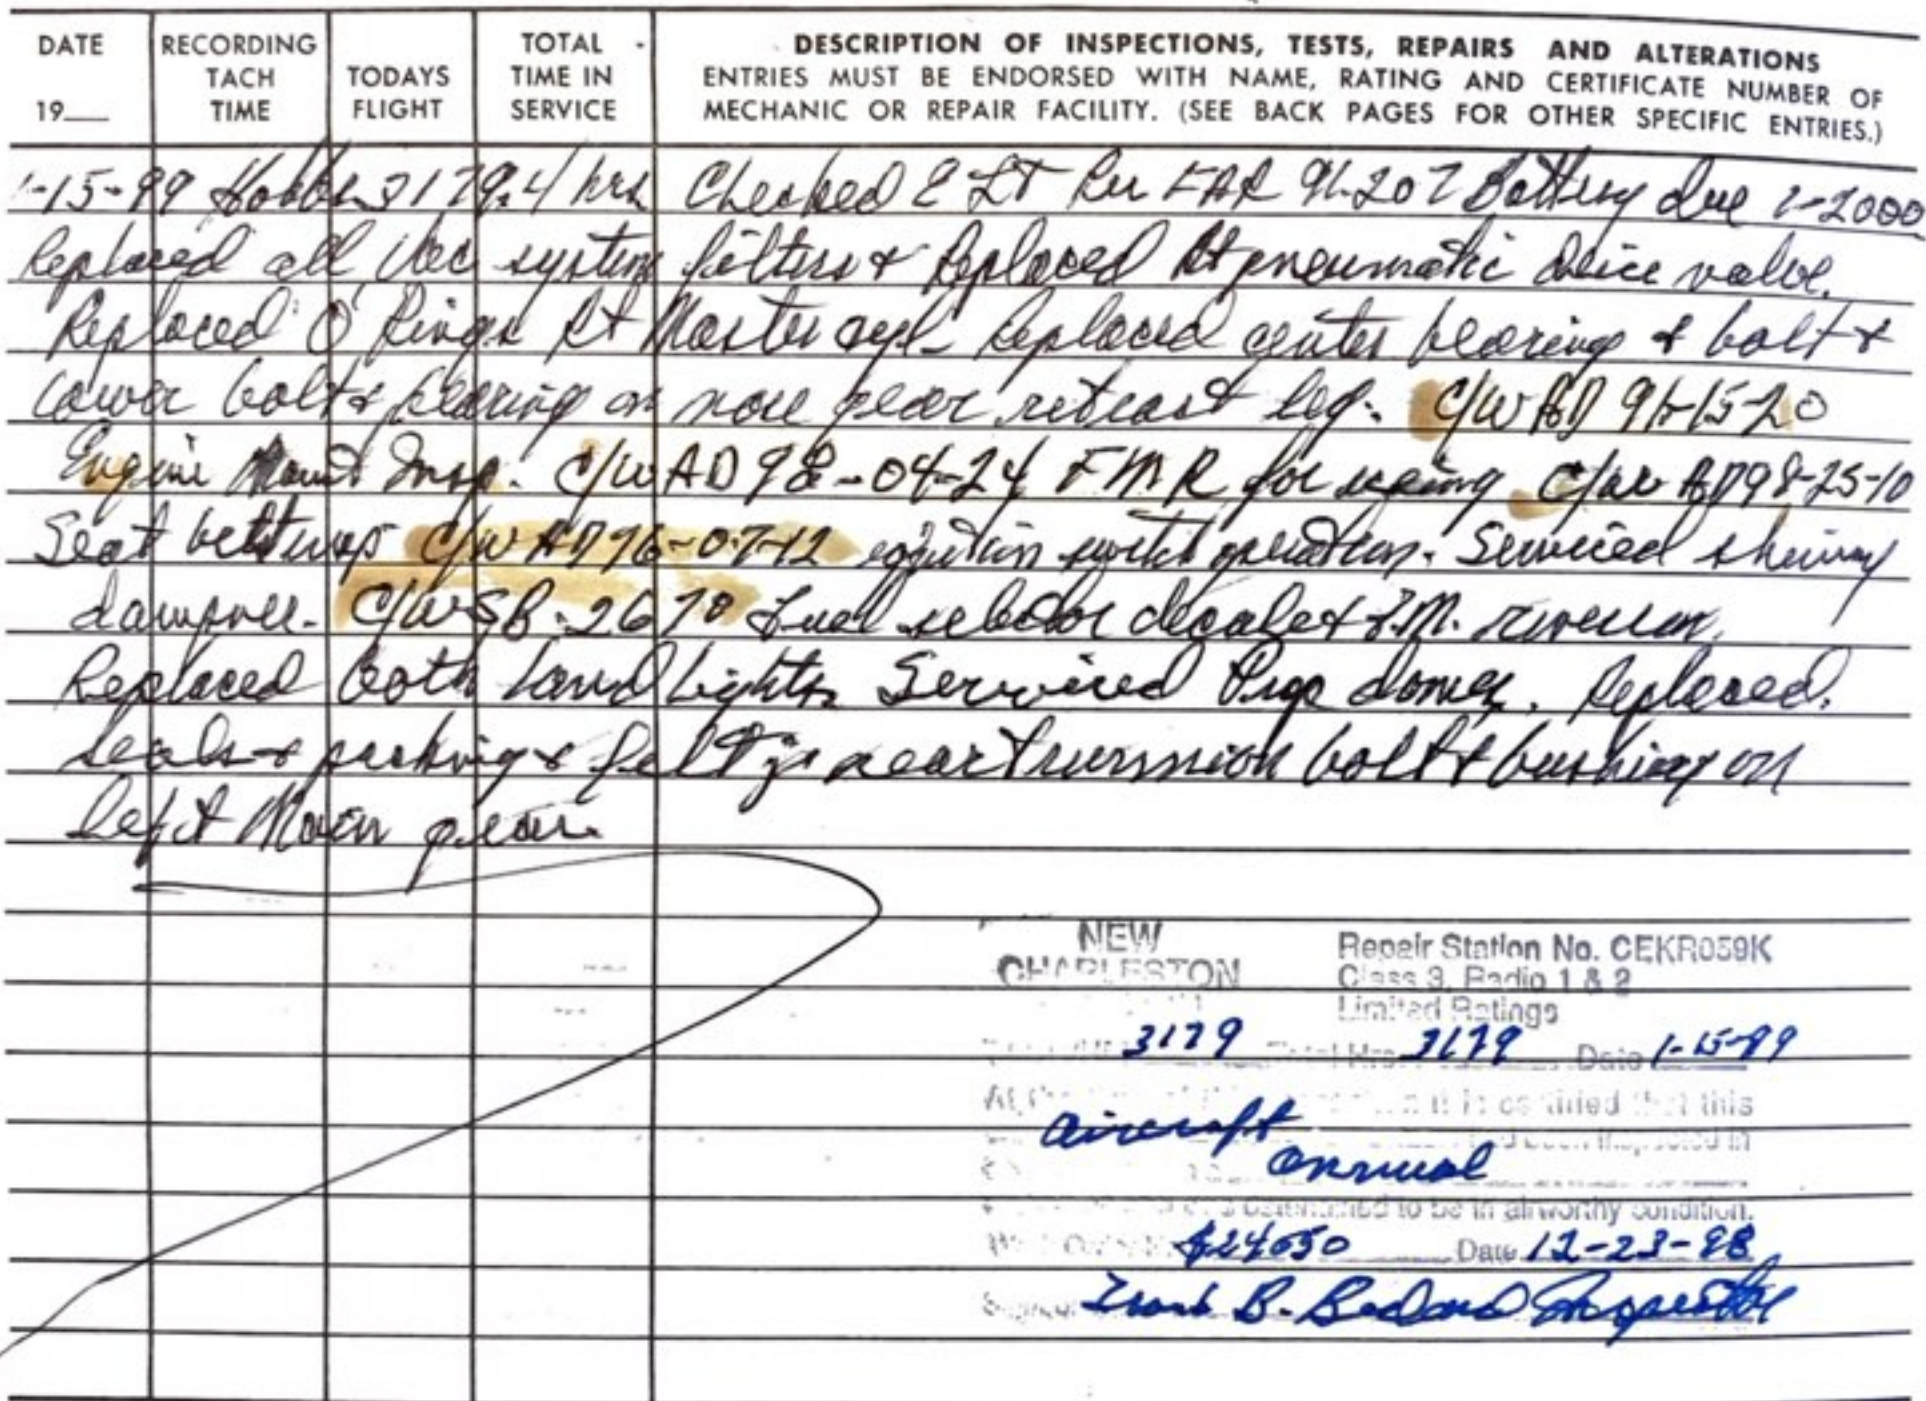 DATE
19__
RECORDING
TACH
TIME
TODAYS
FLIGHT
TOTAL
TIME IN
SERVICE
DESCRIPTION OF INSPECTIONS, TESTS, REPAIRS AND ALTERATIONS
ENTRIES MUST BE ENDORSED WITH NAME, RATING AND CERTIFICATE NUMBER OF
MECHANIC OR REPAIR FACILITY. (SEE BACK PAGES FOR OTHER SPECIFIC ENTRIES.)
1-15-99 Hobbs 3179.4 hrs Checked ELT Per FAR 91.207 Battery due 1-2000
Replaced all Vac system filters & Replaced Rt pneumatic deice valve.
Replaced O Rings Rt Master cyl- Replaced center bearing & bolt &
lower bolt & bearing on nose gear retract leg. C/W AD 91-15-20
Engine Mount Insp. C/W AD 98-04-24 F M R for icing C/W AD 98-25-10
Seat belt C/W AD 76-07-12 ignition switch operation. Serviced shimmy
dampner. C/W SB. 2670 Fuel selector decals & F.M. revision.
Replaced both land Lights Serviced Prop domes. Replaced
seals & packing & felt in rear trunnion bolt & bushing on
Left Main gear.
NEW
CHARLESTON
Repair Station No. CEKR059K
Class 3, Radio 1 & 2
Limited Ratings
3179 Total Hrs. 3179 Date 1-15-99
it is certified that this
aircraft has been inspected in
annual
determined to be in airworthy condition.
24050 Date 12-23-98
Frank B. Inspector